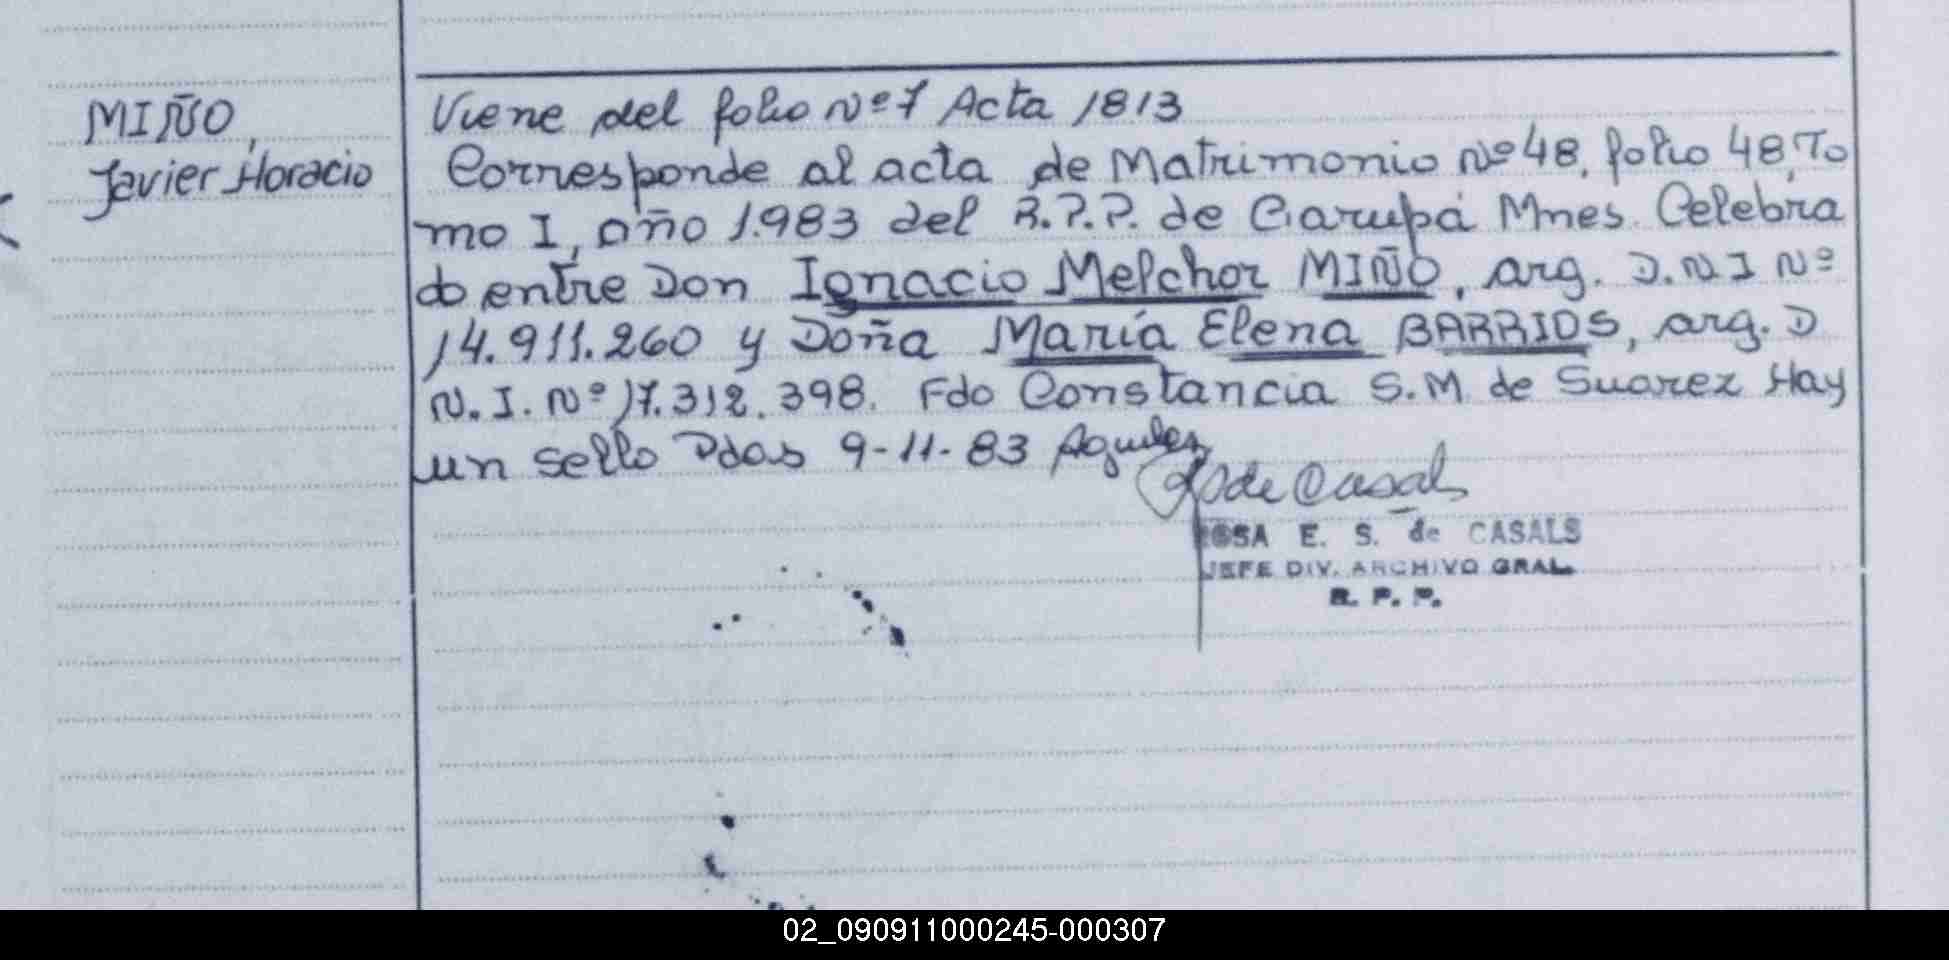 MIÑO,
Javier Horacio
Viene del folio Nº 7 Acta 1813
Corresponde al acta de Matrimonio Nº 48, folio 48, To
mo I, año 1.983 del R.P.P. de Garupá Mnes. Celebra
do entre Don Ignacio Melchor MIÑO, arg. D.N.I Nº
14.911.260 y Doña María Elena BARRIOS, arg. D
N.I. Nº 17.312.398. Fdo Constancia S.M. de Suarez Hay
un sello Pdas 9-11-83
de Casals
ROSA E. S. de CASALS
JEFE DIV. ARCHIVO GRAL.
R. P. P.
02_090911000245-000307